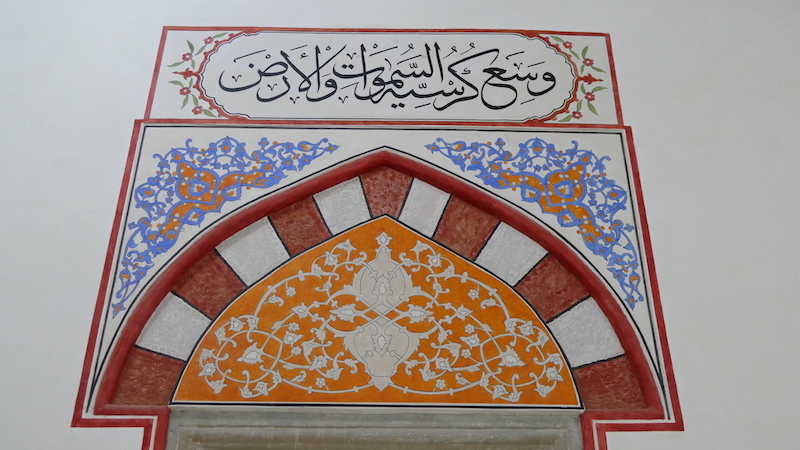 وَسِعَ كُرْسِيُّهُ السَّمٰوَاتِ وَالْأَرْضَ